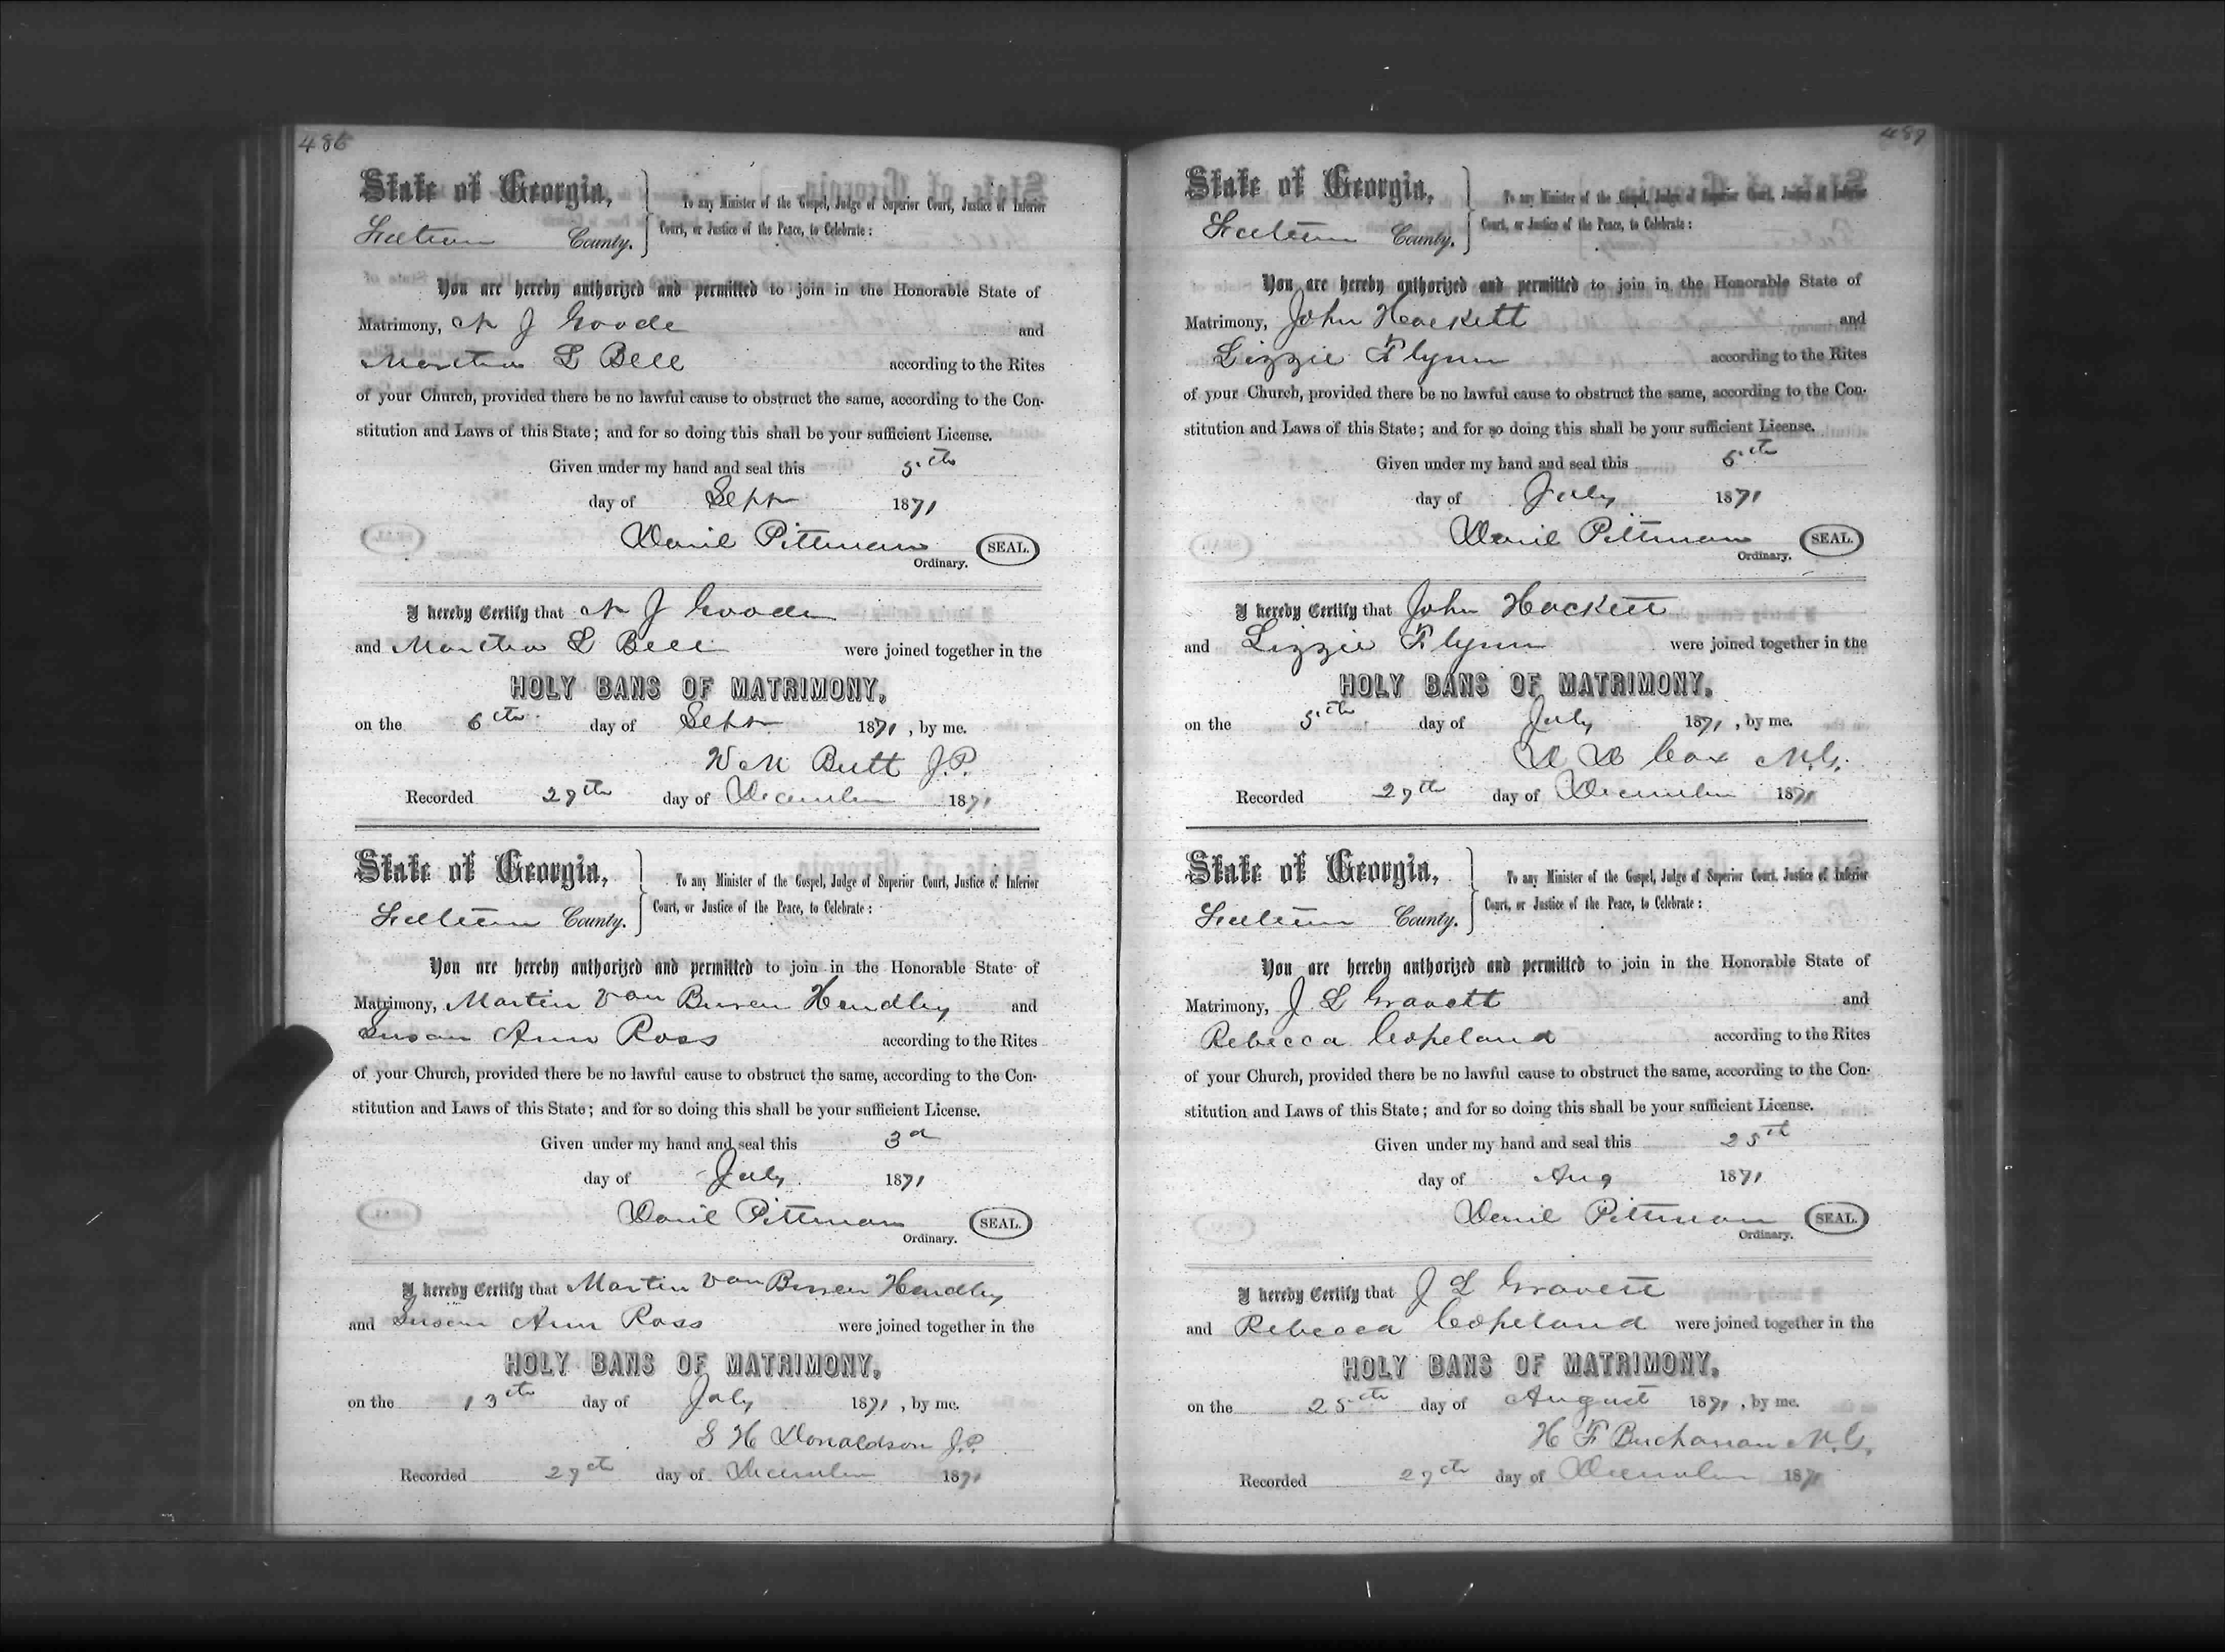 486
State of Georgia,
Fulton County.
To any Minister of the Gospel, Judge of Superior Court, Justice of Inferior
Court, or Justice of the Peace, to Celebrate:
You are hereby authorized and permitted to join in the Honorable State of
Matrimony, N J Goode and
Martha L Bell according to the Rites
of your Church, provided there be no lawful cause to obstruct the same, according to the Con-
stitution and Laws of this State; and for so doing this shall be your sufficient License.
Given under my hand and seal this 5th
day of Sept 1871
Daniel Pittman SEAL.
Ordinary.
I hereby Certify that N J Goode
and Martha L Bell were joined together in the
HOLY BANS OF MATRIMONY,
on the 6th day of Sept 1871, by me.
W M Butt J.P.
Recorded 27th day of December 1871
State of Georgia,
Fulton County.
To any Minister of the Gospel, Judge of Superior Court, Justice of Inferior
Court, or Justice of the Peace, to Celebrate:
You are hereby authorized and permitted to join in the Honorable State of
Matrimony, Martin Van Buren Hendley and
Susan Ann Ross according to the Rites
of your Church, provided there be no lawful cause to obstruct the same, according to the Con-
stitution and Laws of this State; and for so doing this shall be your sufficient License.
Given under my hand and seal this 3d
day of July 1871
Daniel Pittman SEAL.
Ordinary.
I hereby Certify that Martin Van Buren Hendley
and Susan Ann Ross were joined together in the
HOLY BANS OF MATRIMONY,
on the 13th day of July 1871, by me.
S H Donaldson J.P.
Recorded 27th day of December 1871
487
State of Georgia,
Fulton County.
To any Minister of the Gospel, Judge of Superior Court, Justice of Inferior
Court, or Justice of the Peace, to Celebrate:
You are hereby authorized and permitted to join in the Honorable State of
Matrimony, John Hackett and
Lizzie Flynn according to the Rites
of your Church, provided there be no lawful cause to obstruct the same, according to the Con-
stitution and Laws of this State; and for so doing this shall be your sufficient License.
Given under my hand and seal this 5th
day of July 1871
Daniel Pittman SEAL.
Ordinary.
I hereby Certify that John Hackett
and Lizzie Flynn were joined together in the
HOLY BANS OF MATRIMONY,
on the 5th day of July 1871, by me.
D D Cox M.G.
Recorded 27th day of December 1871
State of Georgia,
Fulton County.
To any Minister of the Gospel, Judge of Superior Court, Justice of Inferior
Court, or Justice of the Peace, to Celebrate:
You are hereby authorized and permitted to join in the Honorable State of
Matrimony, J L Gravett and
Rebecca Copeland according to the Rites
of your Church, provided there be no lawful cause to obstruct the same, according to the Con-
stitution and Laws of this State; and for so doing this shall be your sufficient License.
Given under my hand and seal this 25th
day of Aug 1871
Daniel Pittman SEAL.
Ordinary.
I hereby Certify that J L Gravett
and Rebecca Copeland were joined together in the
HOLY BANS OF MATRIMONY,
on the 25th day of August 1871, by me.
H F Buchanan M.G.
Recorded 27th day of December 1871